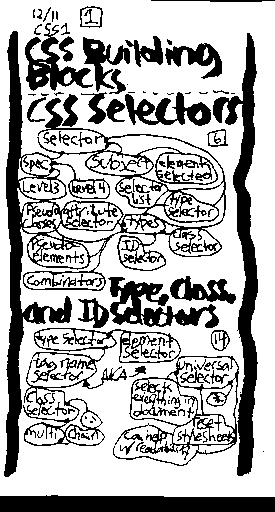 12/11 1
CSS1
CSS Building
Blocks
CSS Selectors
Selector 6
Spec Subject elements
selected
Level 3 Level 4 Selector
list Type
Selector
Pseudo
classes attribute
Selector types
class
Selector
Pseudo
elements ID
selector
Combinators Type, Class,
and ID Selectors
type selector element
selector 14
tag name
selector AKA universal
selector
*
selects
everything in
document
class
selector
reset
stylesheets
multi chain can help
w/ readability